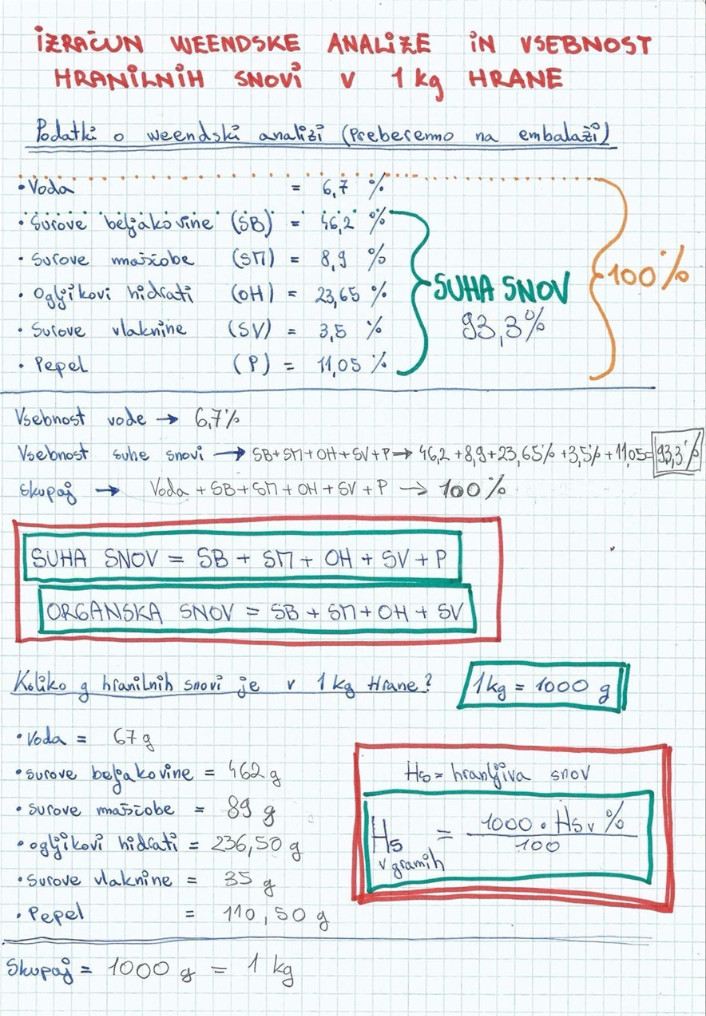 IZRAČUN WEENDSKE ANALIZE IN VSEBNOST
HRANILNIH SNOVI V 1 kg HRANE
Podatki o weendski analizi (Preberemo na embalaži)
• Voda = 6,7 %
• Surove beljakovine (SB) = 46,2 %
• Surove maščobe (SM) = 8,9 %
• Ogljikovi hidrati (OH) = 23,65 %
• Surove vlaknine (SV) = 3,5 %
• Pepel (P) = 11,05 %
SUHA SNOV
93,3%
100%
Vsebnost vode → 6,7%
Vsebnost suhe snovi → SB+SM+OH+SV+P → 46,2+8,9+23,65%+3,5%+11,05= 93,3%
Skupaj → Voda + SB+SM+OH+SV+P → 100%
SUHA SNOV = SB + SM + OH + SV + P
ORGANSKA SNOV = SB + SM + OH + SV
Koliko g hranilnih snovi je v 1 kg Hrane?
1kg = 1000 g
• Voda = 67 g
• surove beljakovine = 462 g
• surove maščobe = 89 g
• ogljikovi hidrati = 236,50 g
• Surove vlaknine = 35 g
• Pepel = 110,50 g
Hs = hranljiva snov
Hs v gramih = 1000 • Hs v % / 100
Skupaj = 1000 g = 1 kg